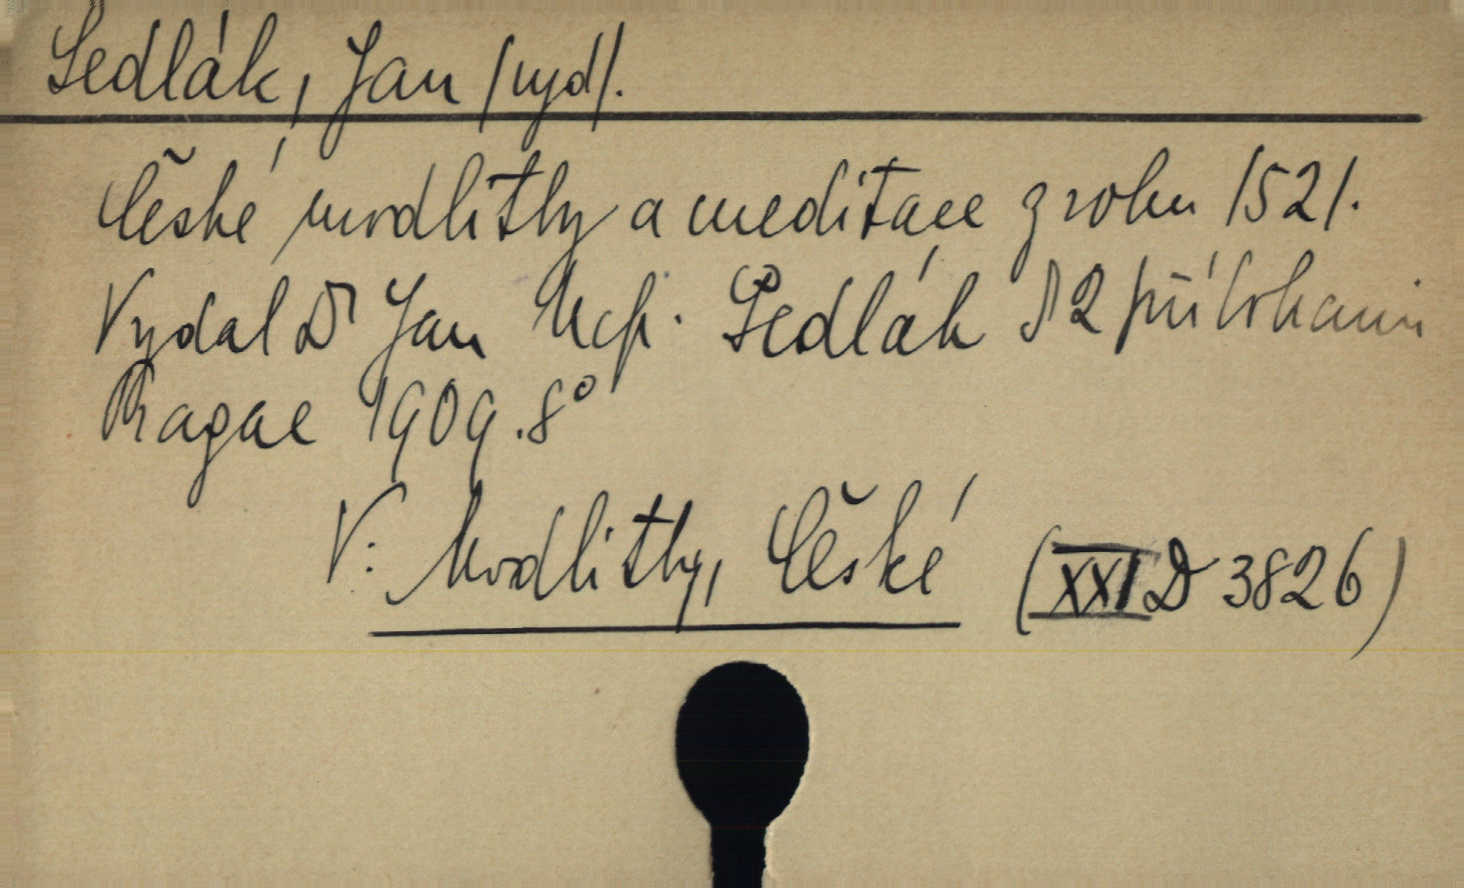 Sedlák, Jan /vyd/.
České modlitby a meditace z roku 1521.
Vydal Dr Jan Nep. Sedlák S 2 přílohami
Pragae 1909. 8°
V: Modlitby, České (XXI D 3826)